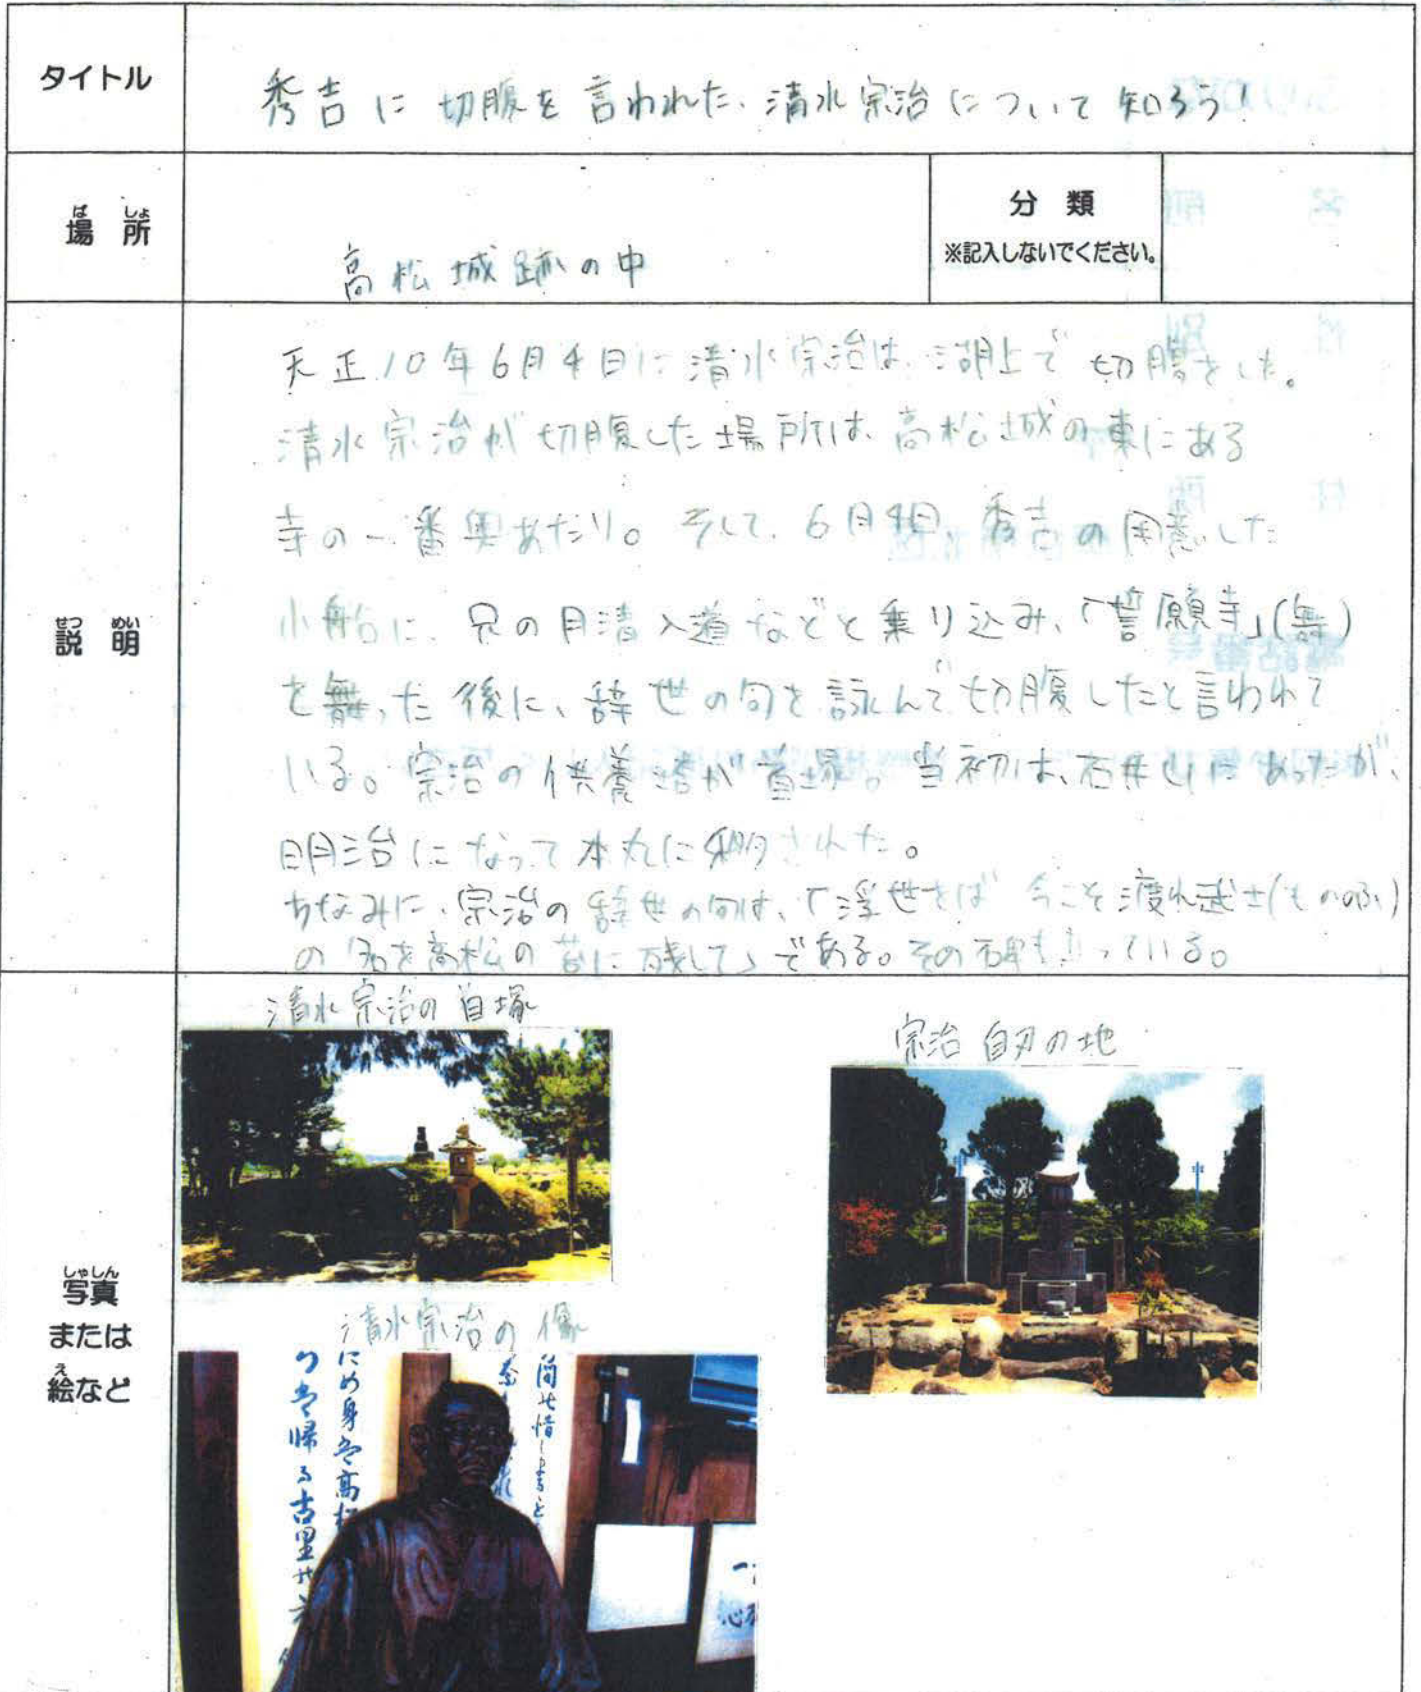 タイトル
秀吉に切腹を言われた、清水宗治について知ろう!
ばしょ
場所
高松城跡の中
分類
※記入しないでください。
せつめい
説明
天正10年6月4日に清水宗治は、湖上で切腹をした。
清水宗治が切腹した場所は、高松城の東にある
寺の一番奥あたり。そして、6月4日、秀吉の用意した
小船に、兄の月清入道などと乗り込み、「誓願寺」(舞)
を舞った後に、辞世の句を詠んで切腹したと言われて
いる。宗治の供養塔が首塚。当初は、石井山にあったが、
明治になって本丸に移された。
ちなみに、宗治の辞世の句は、「浮世をば 今こそ渡れ武士(もののふ)
の 名を高松の苔に残して」である。その石碑も立っている。
しゃしん
写真
または
え
絵など
清水宗治の首塚
宗治 自刃の地
清水宗治の像
にめ身を高松
帰る古里
惜
一
心